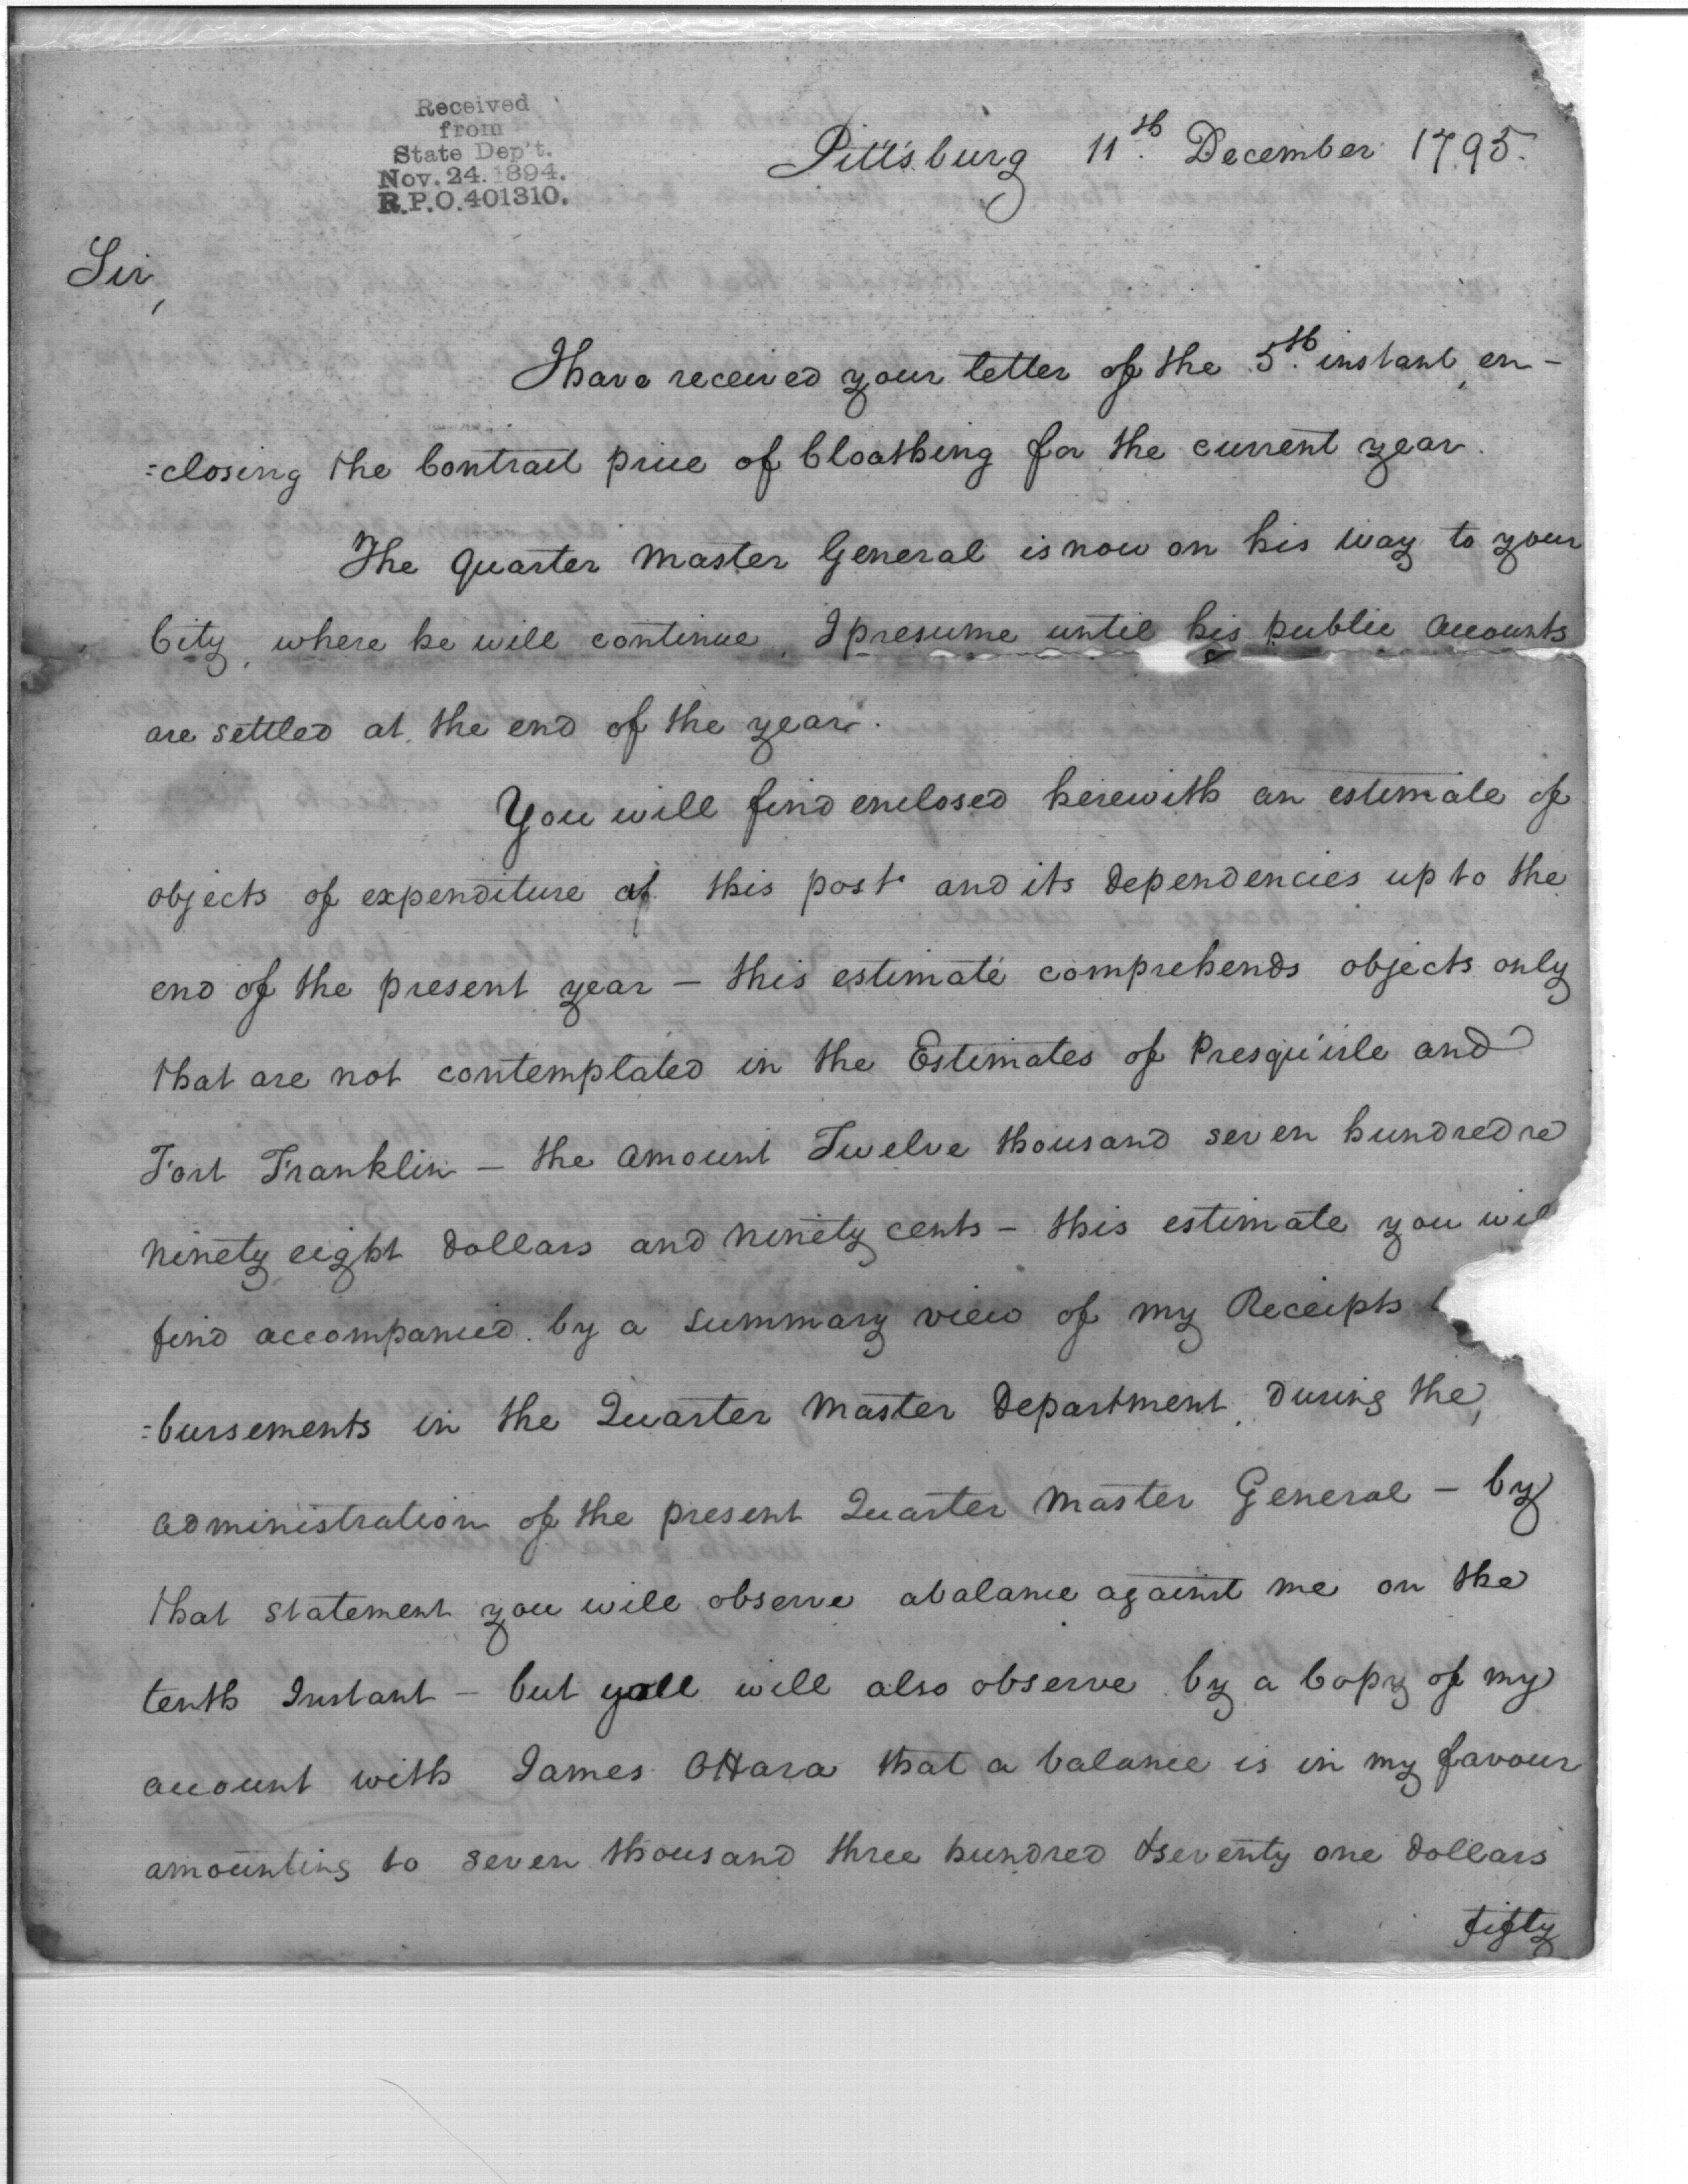 Received
from
State Dep't.
Nov. 24. 1894.
R.P.O. 401310.
Pittsburg 11th. December 1795.
Sir,
I have received your letter of the 5th. instant, en-
=closing the Contract price of Cloathing for the current year.
The Quarter Master General is now on his way to your
City, where he will continue, I presume until his public accounts
are settled at the end of the year.
You will find enclosed herewith an estimate of
objects of expenditure at this post and its dependencies up to the
end of the present year – this estimate comprehends objects only
that are not contemplated in the Estimates of Presqu'isle and
Fort Franklin – the amount Twelve thousand seven hundred
ninety eight dollars and ninety cents – this estimate you wil
find accompanied by a summary view of my Receipts
=bursements in the Quarter Master Department, during the
administration of the present Quarter Master General – by
that statement you will observe a balance against me on the
tenth Instant – but you will also observe by a Copy of my
account with James OHara that a balance is in my favour
amounting to seven thousand three hundred & seventy one dollars
fifty